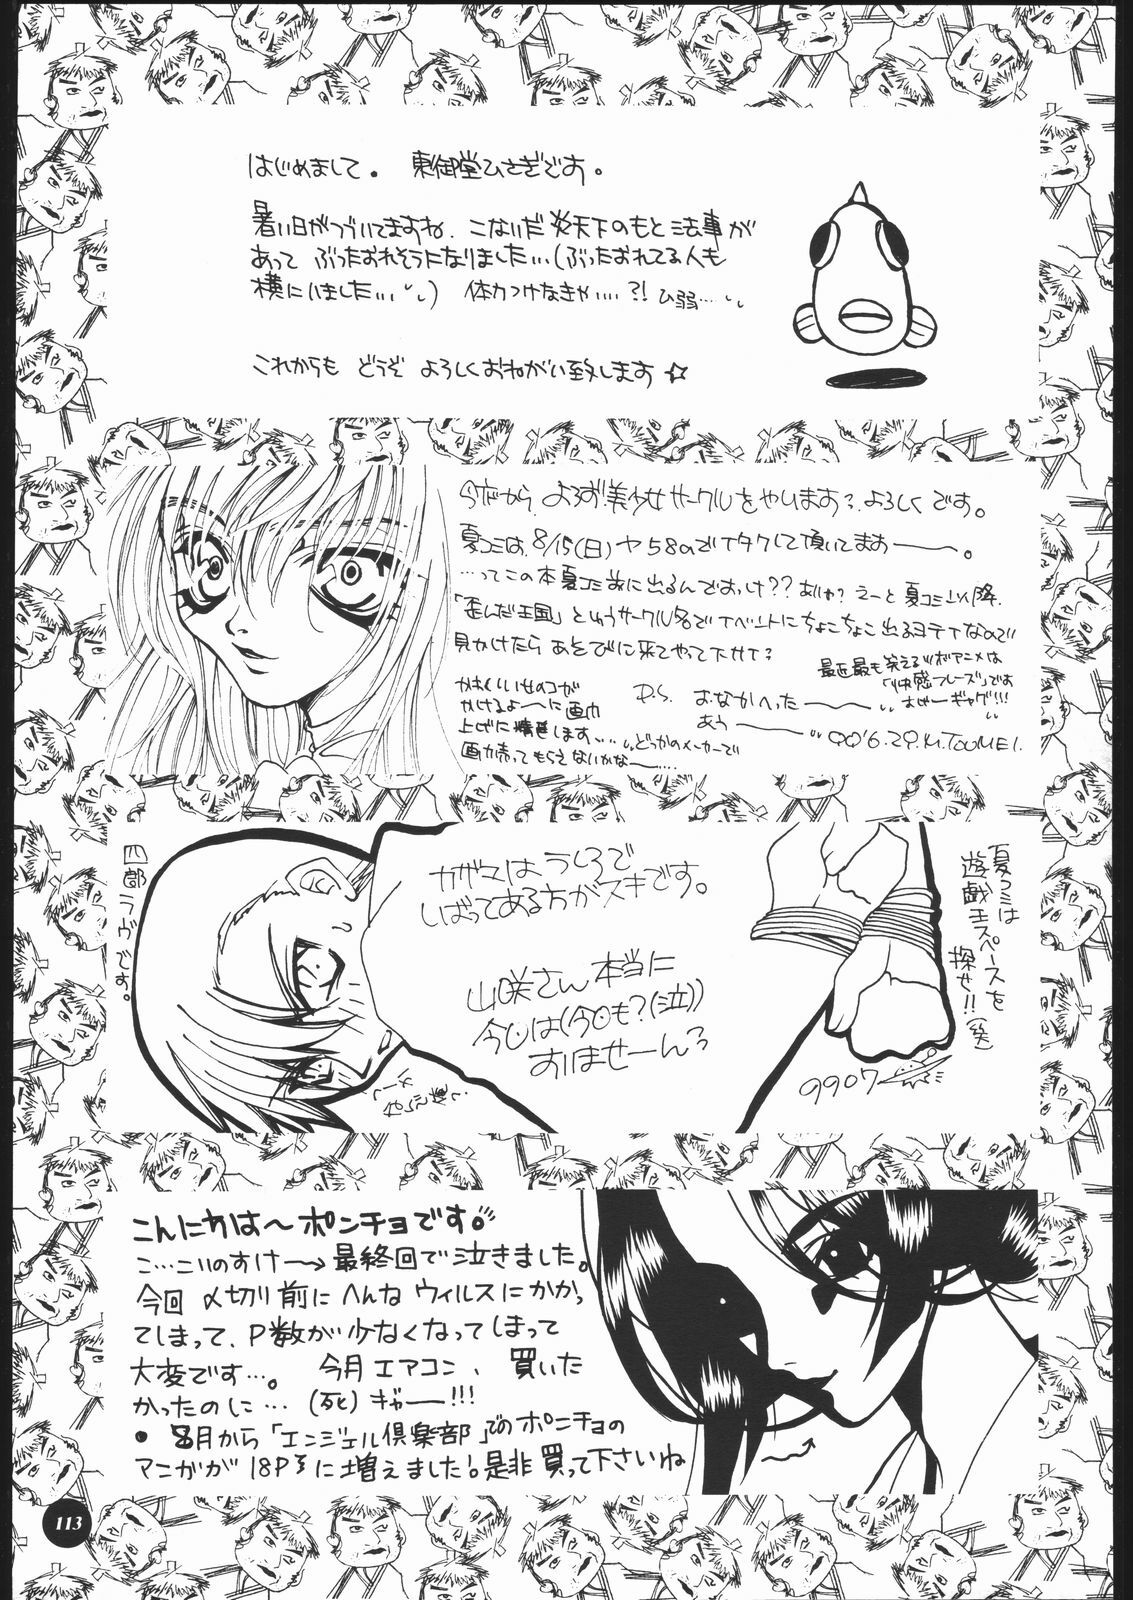 はじめまして。東御堂ひさぎです。
暑い日がつづいてますね、こないだ炎天下のもと法事が
あって ぶったおれそうになりました…(ぶったおれてる人も
横にいました…) 体力つけなきゃ…?! ひ弱…
これからも どうぞ よろしくおねがい致します☆
今夜から、よろず美少女サークルをやります?よろしくです。
夏コミは、8/15(日)ヤ58のでイタクして頂いてまお——。
…ってこの本夏コミ前に出るんですっけ??ありゃ?えーと夏コミ以降、
「歪んだ王国」というサークル名でイベントにちょこちょこ出るヨテイなので
見かけたら あそびに来てやって下サイ?
最近最も笑えるツボアニメは
「快感フレーズ」です
かわいいせのコが
かけるよーに画力
上げに精進します…どっかのメーカーで
画力売ってもらえないかな—…
P.S. おなかへった———
あう——
99'6.29.M.TOUMEI.
四郎ラヴです。
カガミはうしろで
しばってある方がスキです。
山咲さん本当に
今回は(今回も?(泣))
すいませーん?
夏コミは
遊戯王スペースを
探せ!!(笑)
9907
こんにちは〜ポンチョです。
こ…こいのすけ〜→最終回で泣きました。
今回〆切り前にへんなウィルスにかかっ
てしまって、P数が少なくなってしまって
大変です…。 今月エアコン、買いた
かったのに…(死)ギャー—!!!
● 8月から「エンジェル倶楽部」でのポンチョの
マンガが18Pに増えました!是非買って下さいね
113